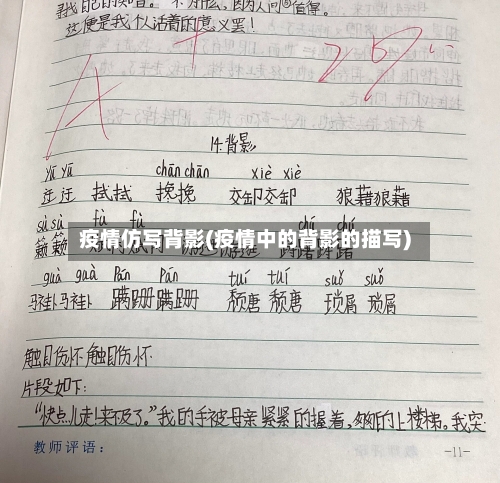 寻找自己的知音。不为什么,因为人间值得。
这便是我个人活着的意义罢!
A+
29/
14.背影
yū yū chān chān xiè xiè
迂迂 拭拭 搀搀 交卸交卸 狼藉狼藉
sù sù fù fù chí chú
簌簌
疫情仿写背影(疫情中的背影的描写)
guà guà pán pán tuí tuí suǒ suǒ
马褂马褂 蹒跚蹒跚 颓唐颓唐 琐屑 琐屑
触目伤怀 触目伤怀
片段如下:
“快点儿走!来不及了。”我的手被母亲紧紧的握着,匆匆的上楼梯。我突
教师评语: -11-